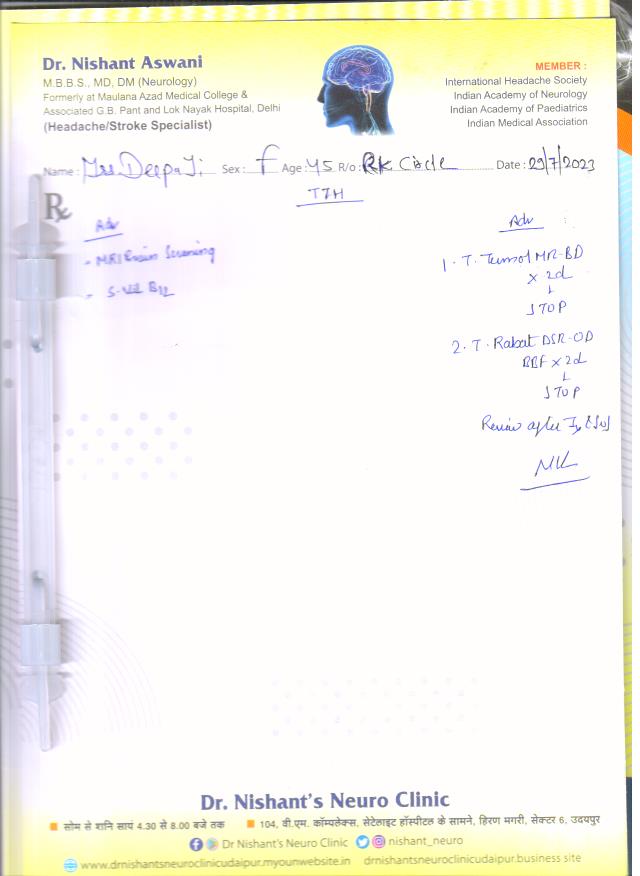 Dr. Nishant Aswani
M.B.B.S., MD, DM (Neurology)
Formerly at Maulana Azad Medical College &
Associated G.B. Pant and Lok Nayak Hospital, Delhi
(Headache/Stroke Specialist)
MEMBER :
International Headache Society
Indian Academy of Neurology
Indian Academy of Paediatrics
Indian Medical Association
Name : Mrs Deepa Ji Sex : F Age : 45 R/o : RK Circle Date : 29/7/2023
TTH
Rx
Adv
- MRI Brain Screening
- S. Vit B12
Adv
1. T. MR-BD
x 2d
↓
STOP
2. T. DSR-OD
BBF x 2d
↓
STOP
Review after
Dr. Nishant's Neuro Clinic
सोम से शनि सायं 4.30 से 8.00 बजे तक 104, वी.एम. कॉम्पलेक्स, सेटेलाइट हॉस्पीटल के सामने, हिरण मगरी, सेक्टर 6, उदयपुर
Dr Nishant's Neuro Clinic nishant_neuro
www.drnishantsneuroclinicudaipur.myounwebsite.in drnishantsneuroclinicudaipur.business site